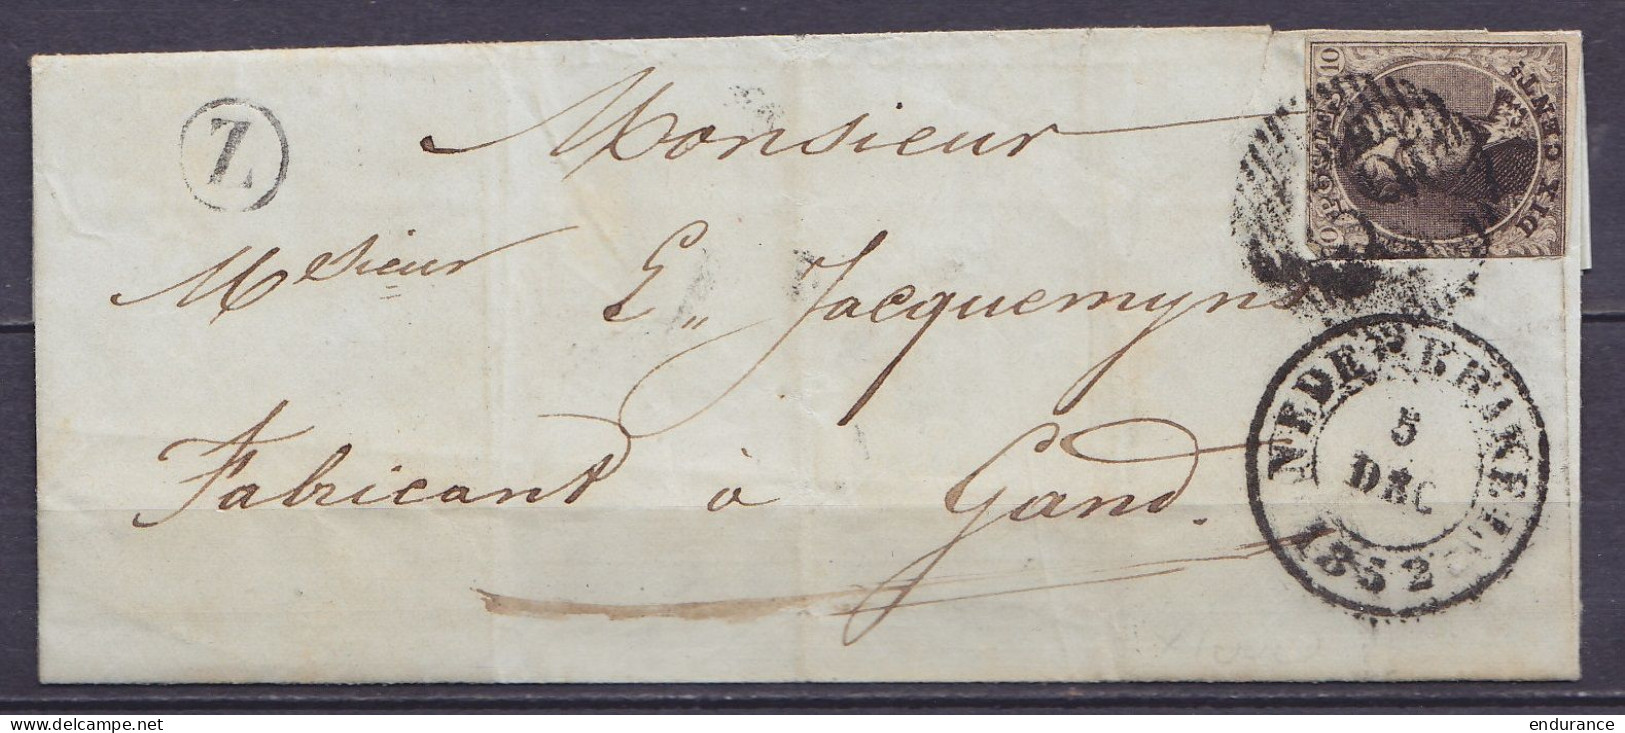 Z
Monsieur
Msieur E,, Jacquemyns
Fabricant à Gand.
10 POSTES 10
DIX CENTS.
NEDERBRAKEL
5
DEC
1852
delcampe.net
endurance